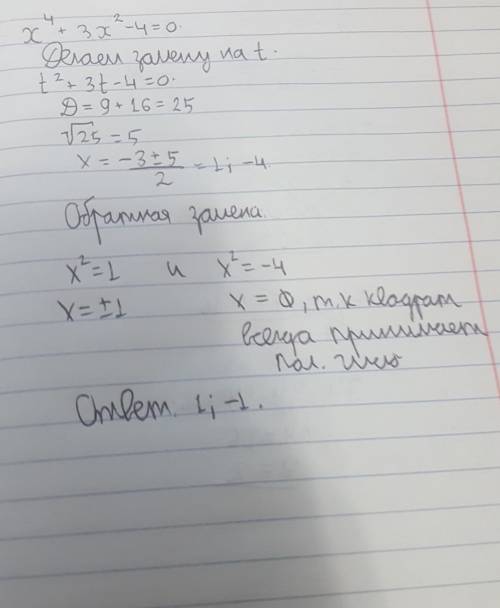 x⁴ + 3x² - 4 = 0.
Делаем замену на t.
t² + 3t - 4 = 0.
D = 9 + 16 = 25
√25 = 5
x = (-3 ± 5)/2 = 1; -4
Обратная замена.
x² = 1 и x² = -4
x = ±1 x = Ø, т.к квадрат
всегда принимает
пол. число
Ответ. 1; -1.